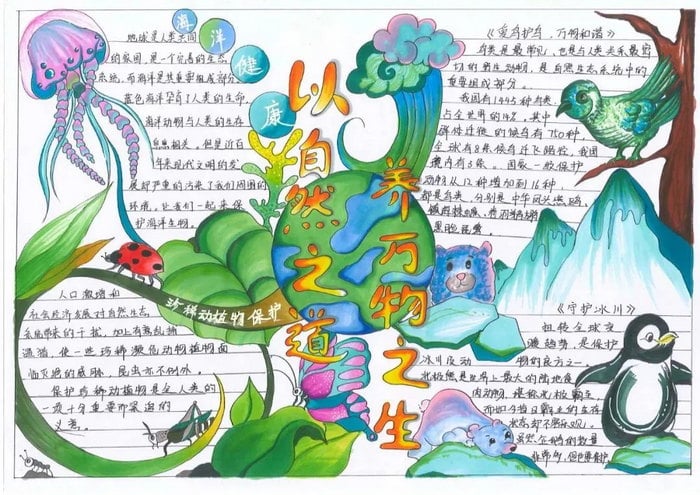 海洋健康
地球是人类共同
的家园，是一个完善的生态
系统，而海洋是其重要组成部分，
蓝色海洋孕育了人类的生命，
海洋动物与人类的生存
息息相关，但是近百
年来现代文明的发
展却严重的污染了我们周围的
环境，让我们一起来保
护海洋生物。
以自然之道
养万物之生
《爱鸟护鸟，万物和谐》
鸟类是最常见，也是与人类关系最密
切的野生动物，是自然生态系统中的
重要组成部分。
我国有1445种鸟类，
占全世界的14%，其中
全球有8条候鸟迁飞路径，我国
境内有3条。国家一级保护
动物从12种增加到16种，
都是鸟类，分别是中华凤头燕鸥、
黑脸琵鹭。
珍稀动植物保护
人口激增和
社会经济发展对自然生态
系统带来的干扰，加上有乱捕
滥猎，使一些珍稀濒危动物植物面
临灭绝的威胁，昆虫亦不例外。
保护珍稀动植物是全人类的
一项十分重要而紧迫的
义务。
《守护冰川》
扭转全球变
暖趋势，是保护
冰川及动物们的良方之一。
北极熊是世界上最大的陆地食
肉动物，堪称北极霸主，